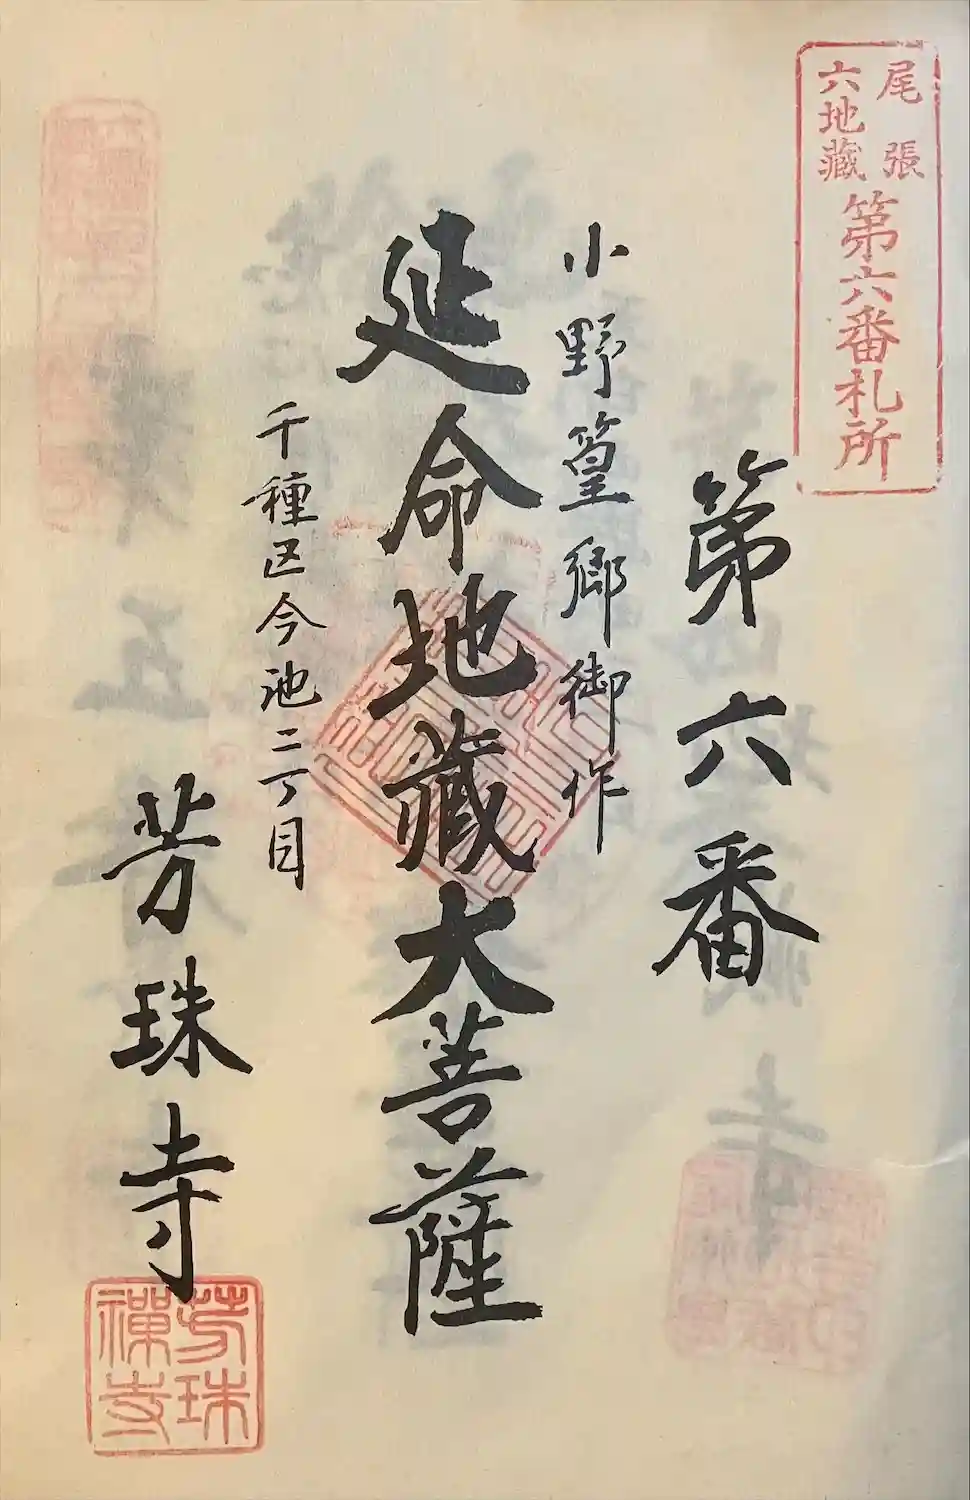 尾張
六地蔵
第六番札所
第六番
小野篁郷御作
延命地蔵大菩薩
千種区今池二丁目
芳珠寺
芳珠
禪寺